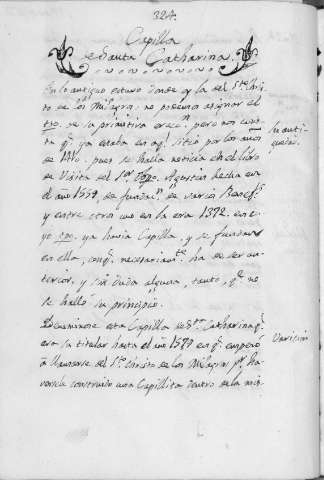 324.
Capilla
de Santa Catharina.
En lo antiguo estuvo donde oy la del Sto. Chris-
to de los Milagros. no podemos asignar el
tpo. de la primitiva erecn. pero nos cons-
ta q. ya estaba en aql. sitio por los años
de 1410. pues se halla noticia en el libro
de Visita del Sor. Dn. Agustin hecha en
el año 1559. de fundans. de varios Benefs.
y entre otros uno en la era 1372. en cu-
yo tpo. ya havia Capilla, y se fundava
en ella, conq. necesariamte. ha de ser an-
terior, y sin duda alguna, tanto, q. no
se halla su principio.
Denominose esta Capilla de Sta. Catharina q.
era su titular hasta el año 1579 en q. empezó
á llamarse del Sto. Christo de los Milagros pr. ha-
verse construido una Capillita dentro de la mis-
su anti-
guedad.